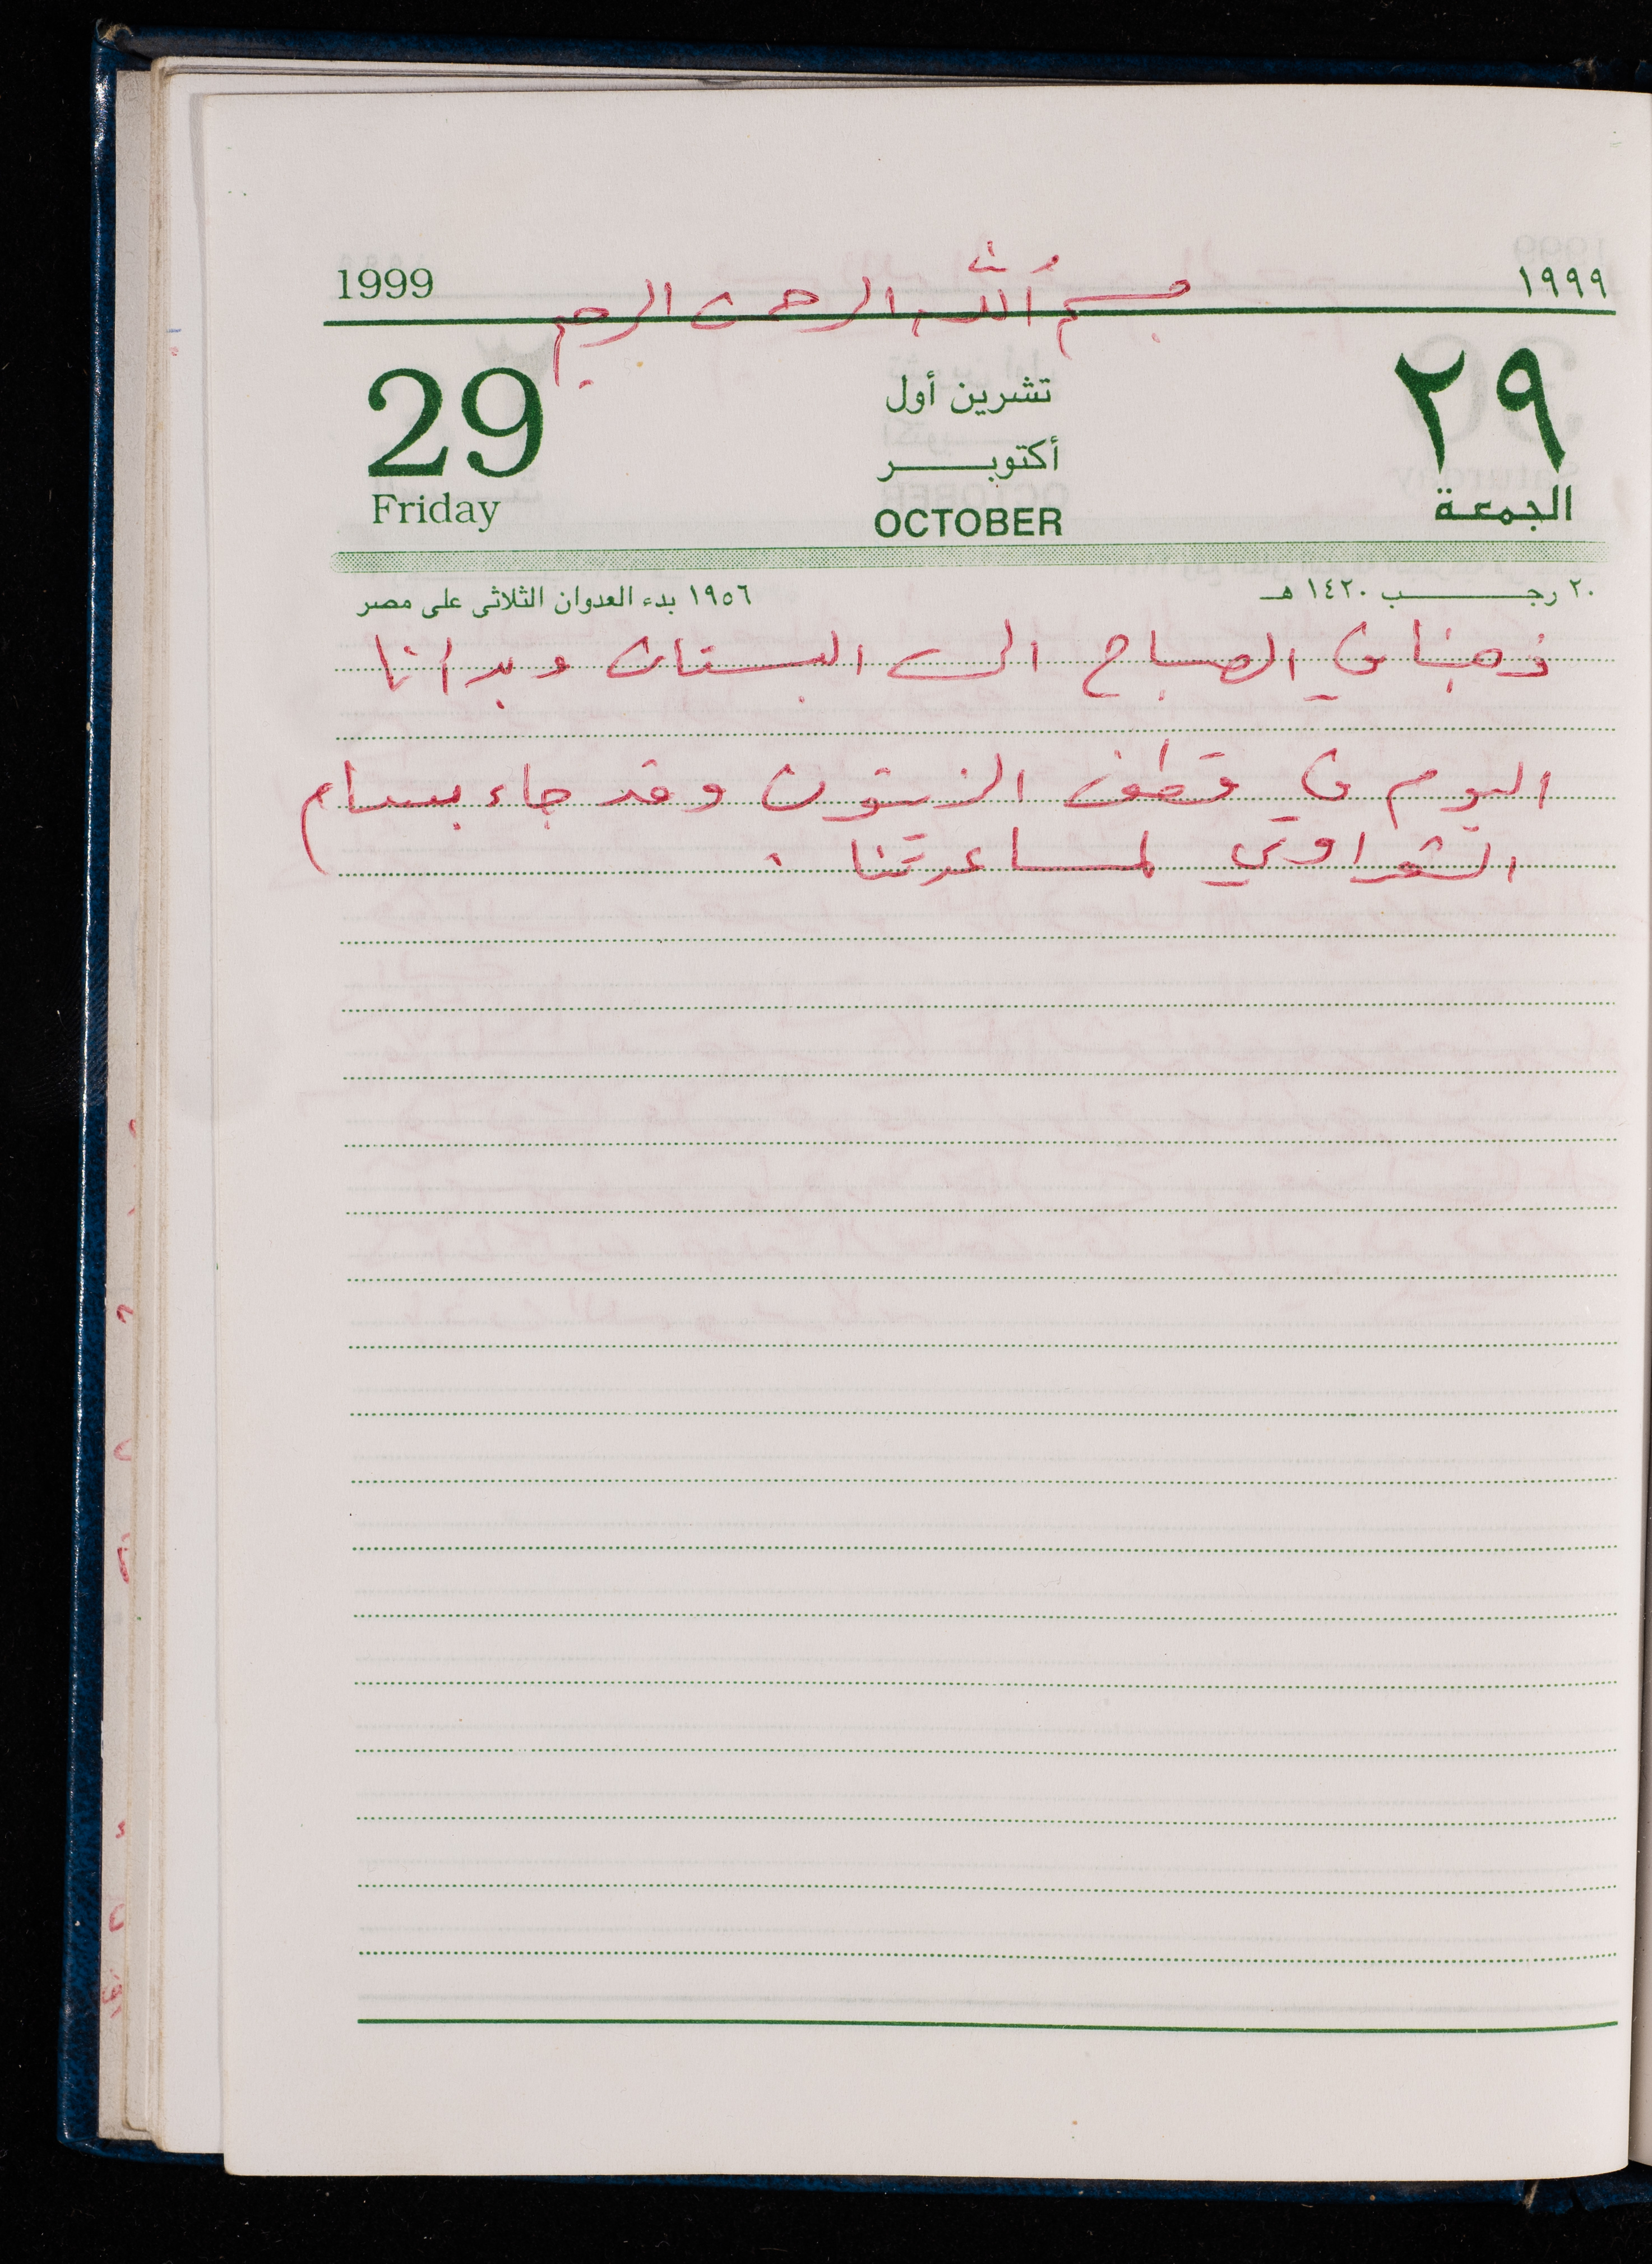 1999 ١٩٩٩
بسم الله الرحمن الرحيم
29 تشرين أول ٢٩
أكتوبر
Friday OCTOBER الجمعة
٢٠ رجب ١٤٢٠ هـ ١٩٥٦ بدء العدوان الثلاثى على مصر
ذهبنا في الصباح الى البستان وبدانا
اليوم في قطف الزيتون وقد جاء بسام
الشعراوي لمساعدتنا .